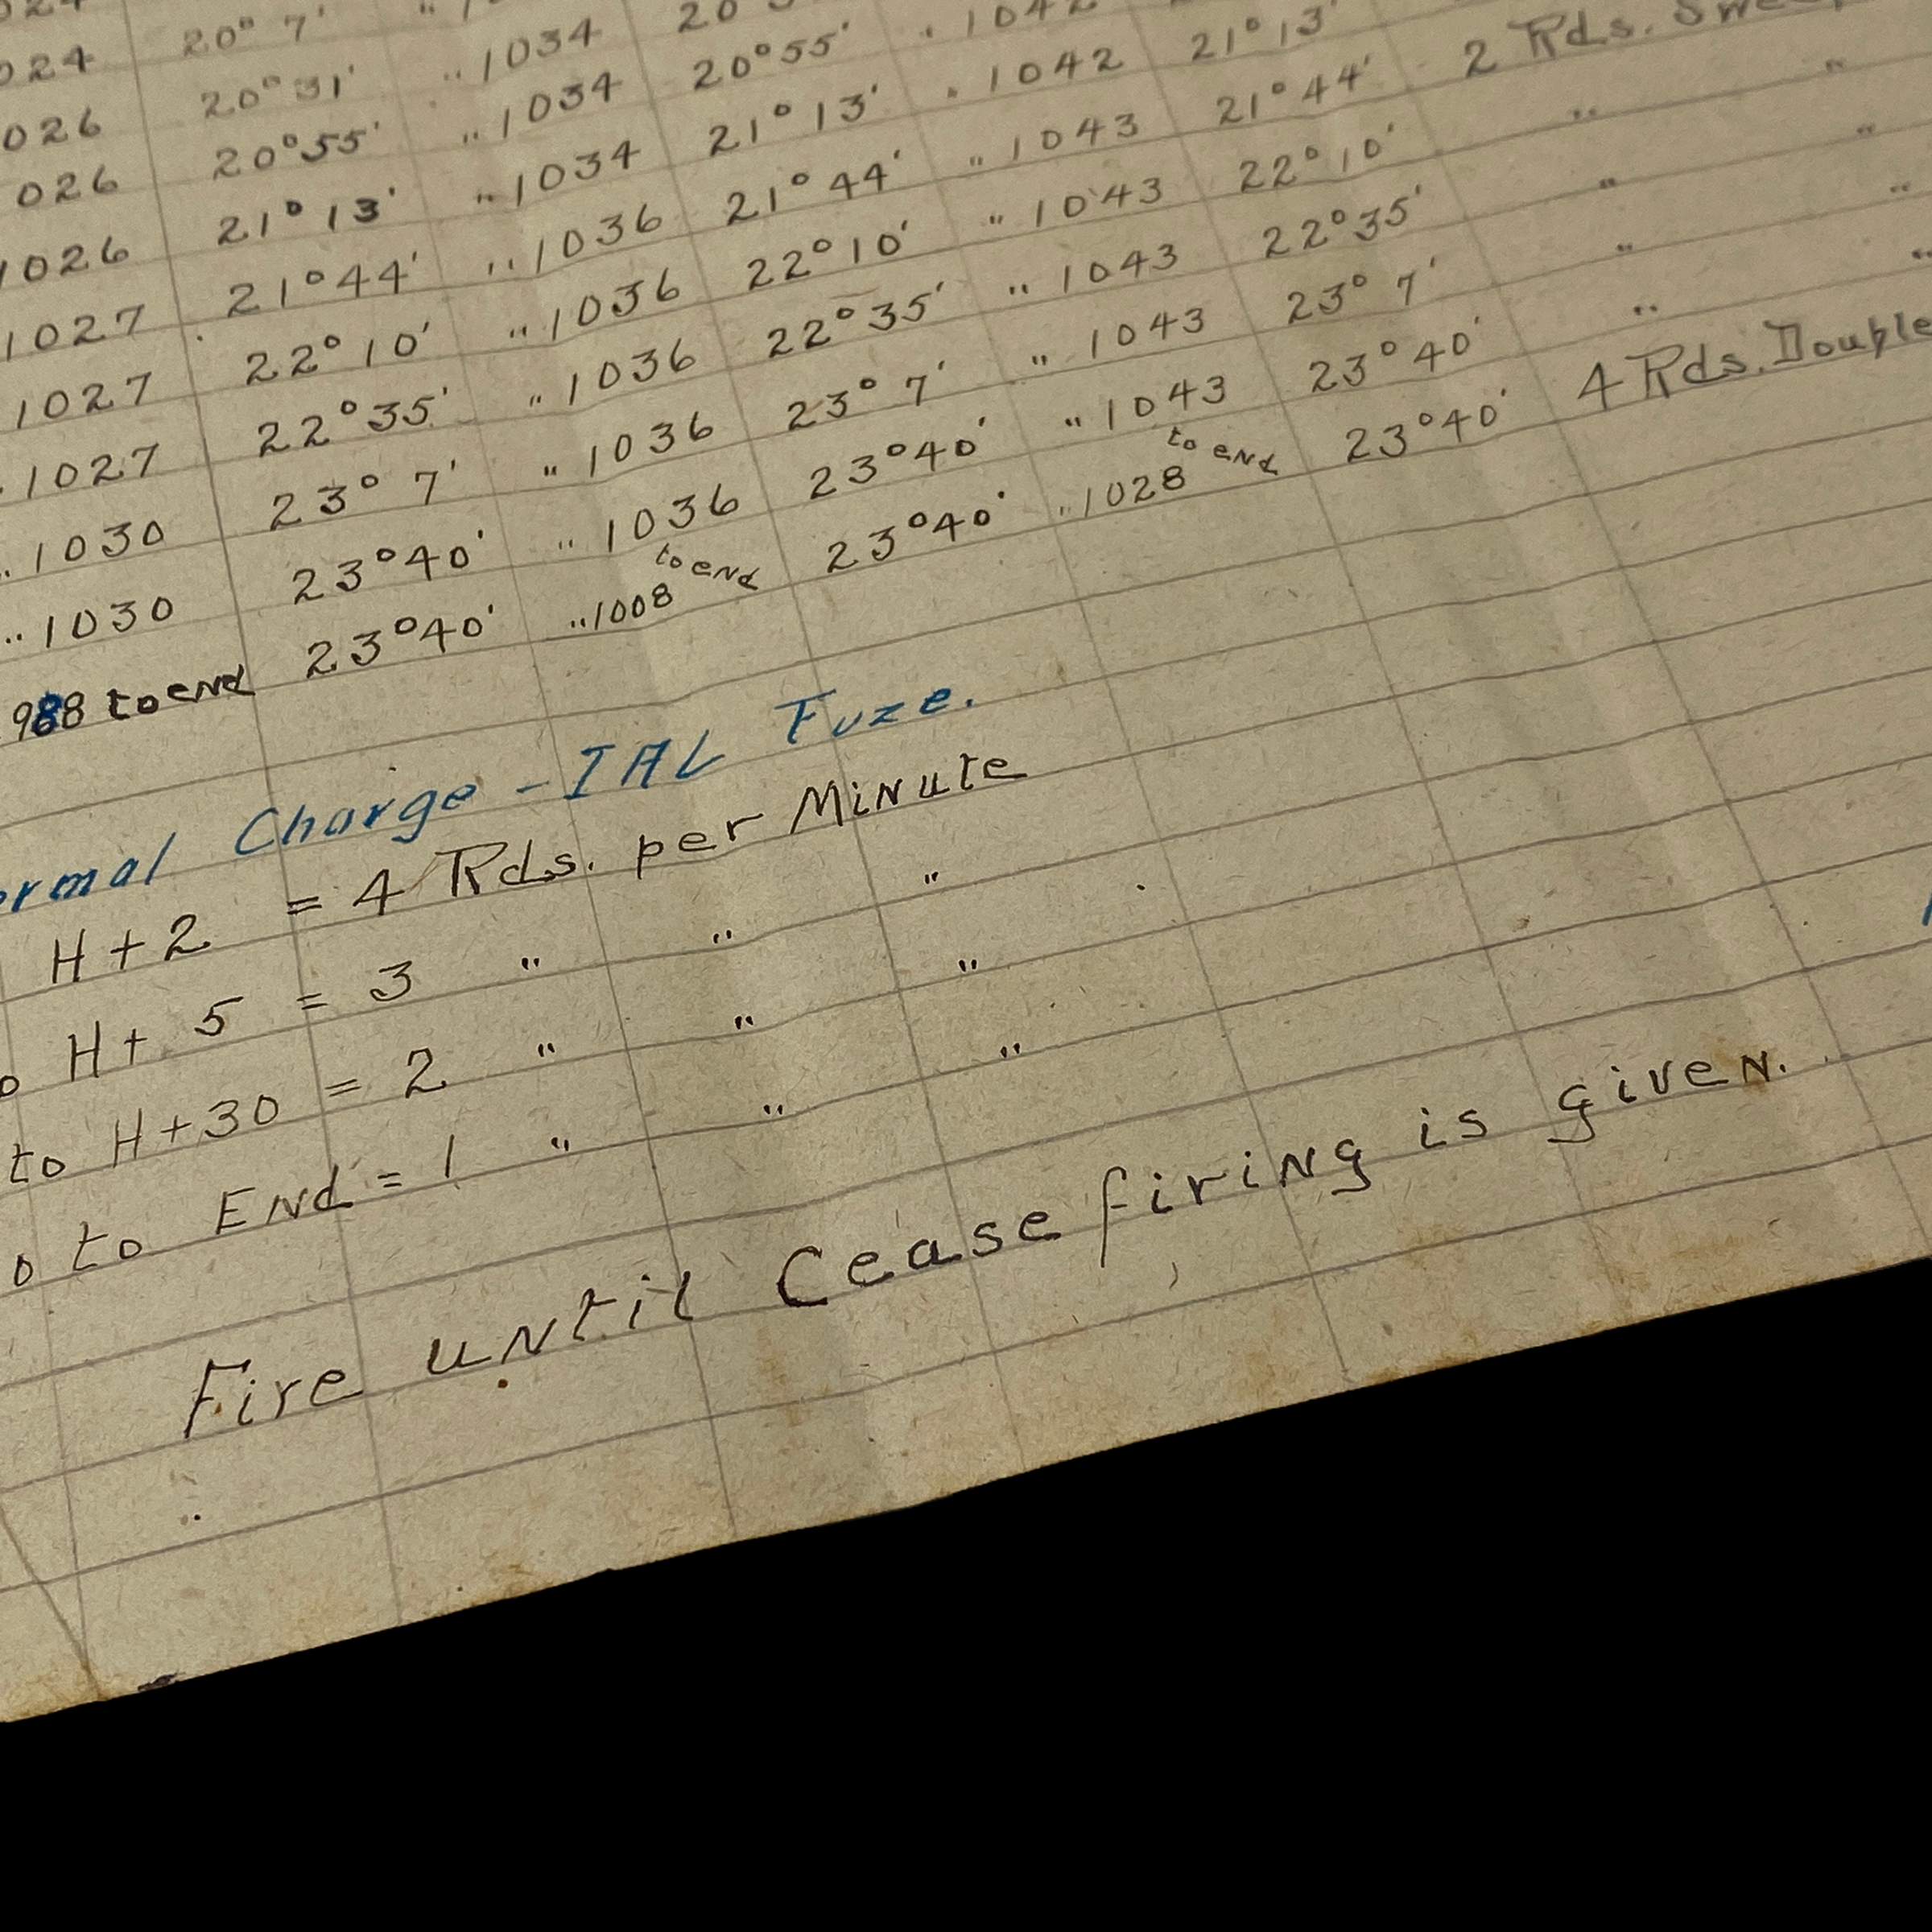 024 20° 7' "
026 20°31' " 1034 20
026 20°55' " 1034 20°55' " 1042
1026 21°13' " 1034 21°13' " 1042 21°13' 2 Rds.
1027 21°44' " 1036 21°44' " 1043 21°44' " "
1027 22°10' " 1036 22°10' " 1043 22°10' " "
" 1027 22°35' " 1036 22°35' " 1043 22°35' " "
" 1030 23° 7' " 1036 23° 7' " 1043 23° 7' " "
" 1030 23°40' " 1036 to end 23°40' " 1043 to end 23°40' "
988 to end 23°40' " 1008 23°40' " 1028 23°40' 4 Rds. Double
ormal Charge - IAL Fuze.
H+2 = 4 Rds. per Minute
o H+ 5 = 3 " " "
to H+30 = 2 " " "
0 to End = 1 " " "
Fire until Cease firing is given.